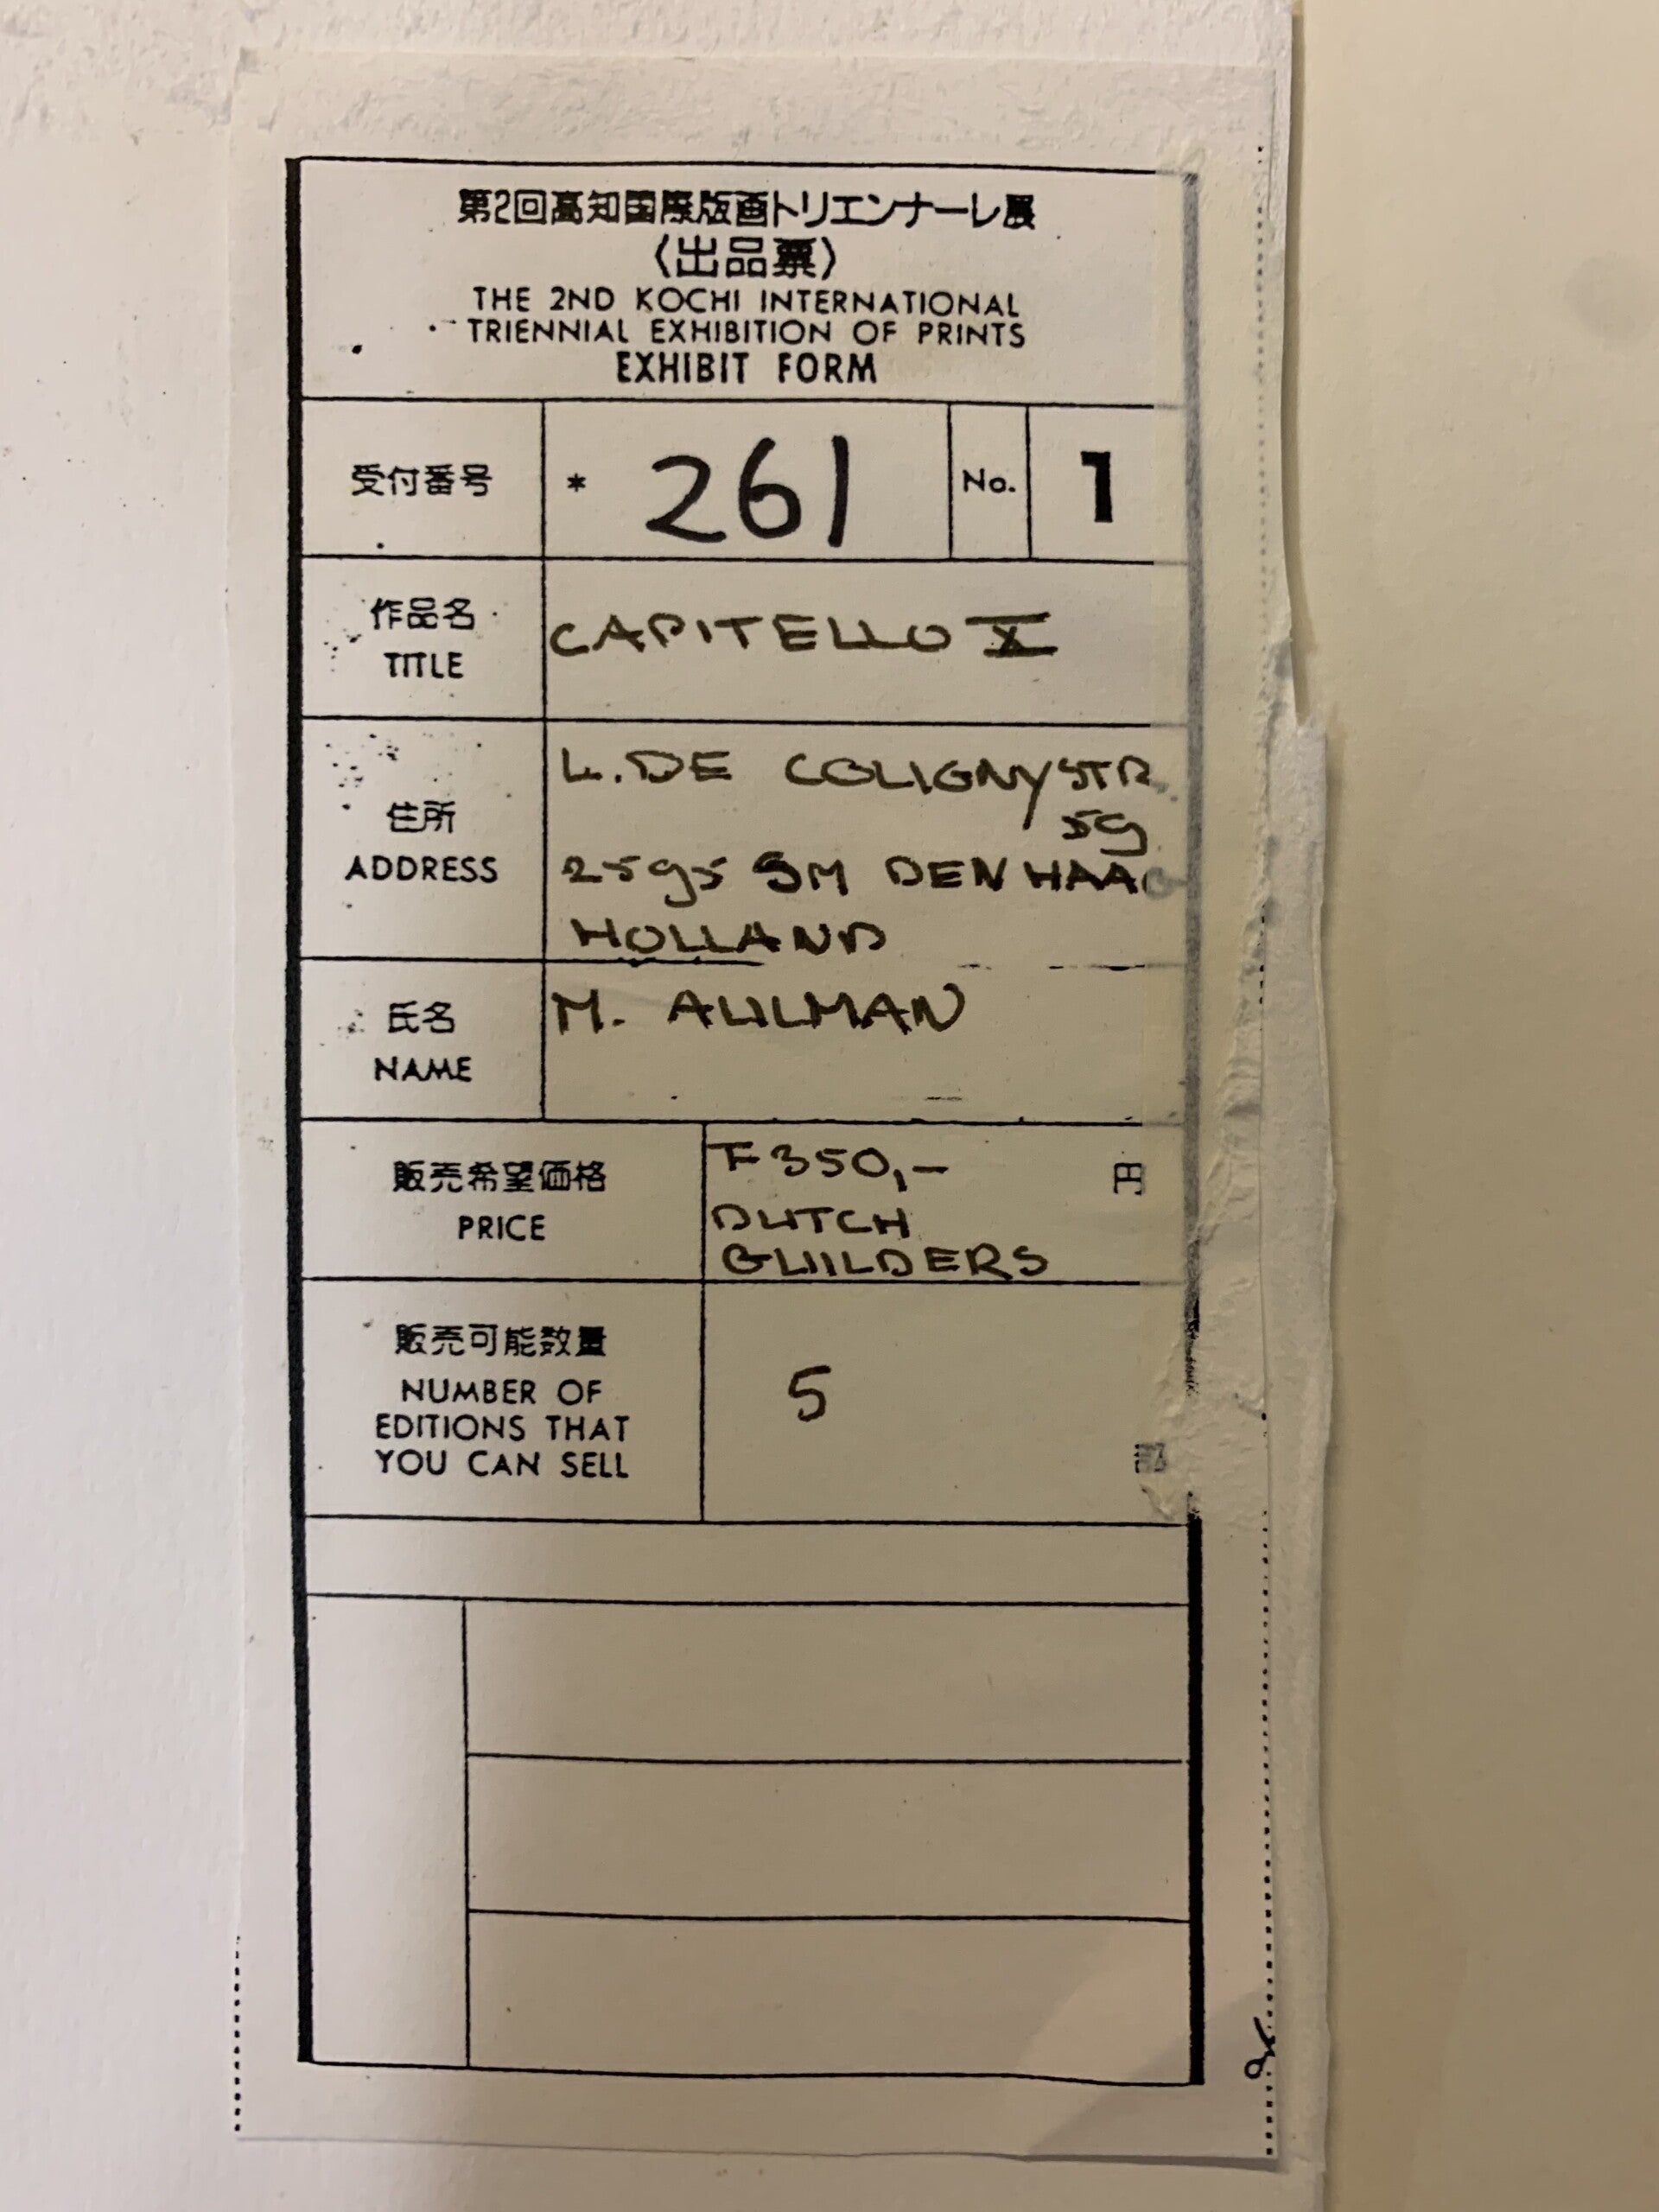 第2回高知国際版画トリエンナーレ展
〈出品票〉
THE 2ND KOCHI INTERNATIONAL
TRIENNIAL EXHIBITION OF PRINTS
EXHIBIT FORM
受付番号 * 261 No. 1
作品名
TITLE
CAPITELLO X
住所
ADDRESS
L. DE COLIGNYSTR.
59
2595 SM DEN HAAG
HOLLAND
氏名
NAME
M. AULMAN
販売希望価格
PRICE
F350,- 円
DUTCH
GUILDERS
販売可能数量
NUMBER OF
EDITIONS THAT
YOU CAN SELL
5